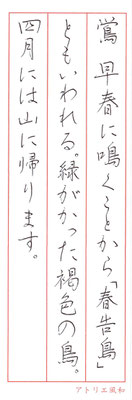 鶯 早春に鳴くことから「春告鳥」
ともいわれる。緑がかった褐色の鳥。
四月には山に帰ります。
アトリエ風和